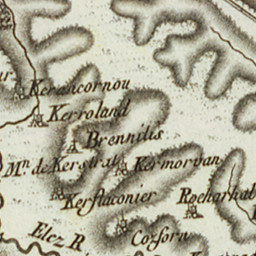 Kerancornou
Kerroland
Brennilis
Mn. de Kerstrat
Kermorvan
Kerflaconier
Rocharhab
Elez R
Cozforn